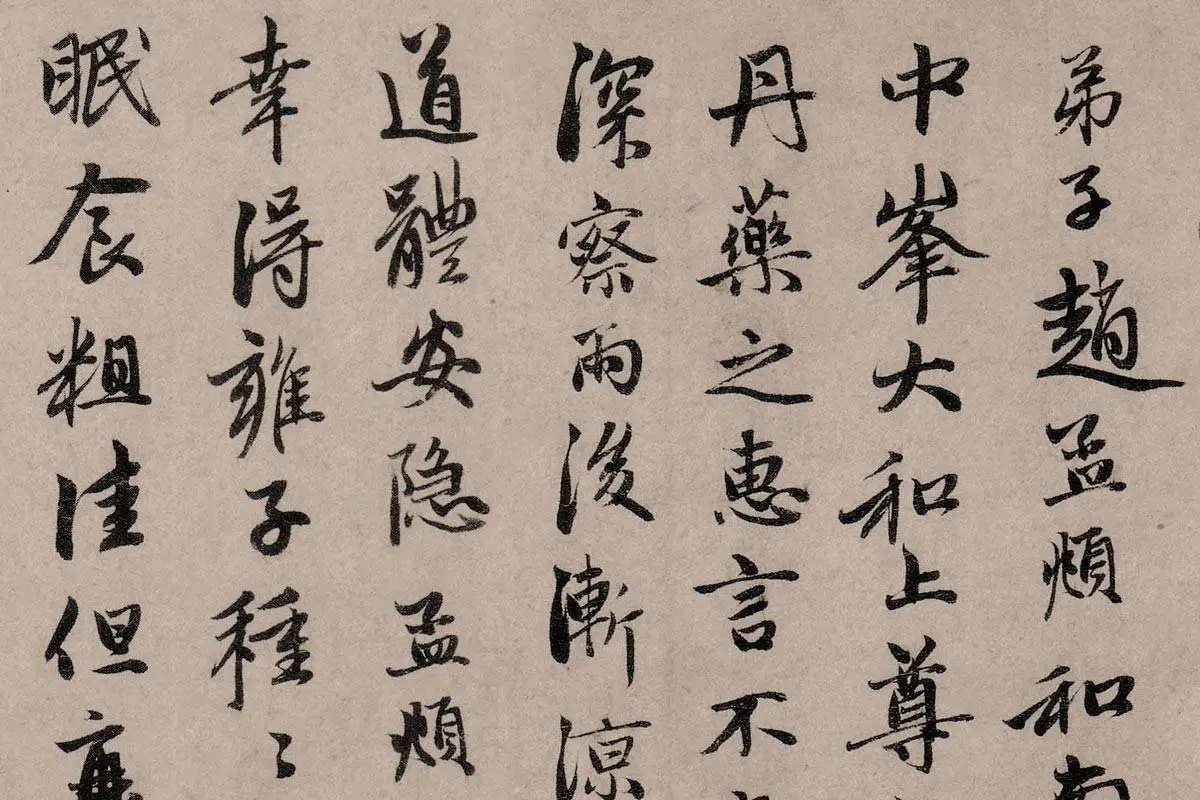 弟子趙孟頫和南
中峯大和上尊
丹藥之惠言不
深察雨後漸涼
道體安隱孟頫
幸得雍子種〻
眠食粗佳但